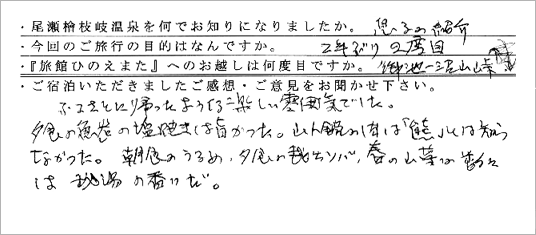 ・尾瀬檜枝岐温泉を何でお知りになりましたか。 息子の紹介
・今回のご旅行の目的はなんですか。 2年ぶり2度目
・『旅館ひのえまた』へのお越しは何度目ですか。 御池一沼山峠
・ご宿泊いただきましたご感想・ご意見をお聞かせ下さい。
ふるさとに帰ったような楽しい雰囲気でした。
夕食の岩魚の塩焼きは旨かった。山人鍋の肉は「熊」とは知ら
なかった。朝食のうるめ、夕食の裁ちソバ、春の山菜の数々
は 秘湯の香りだ。